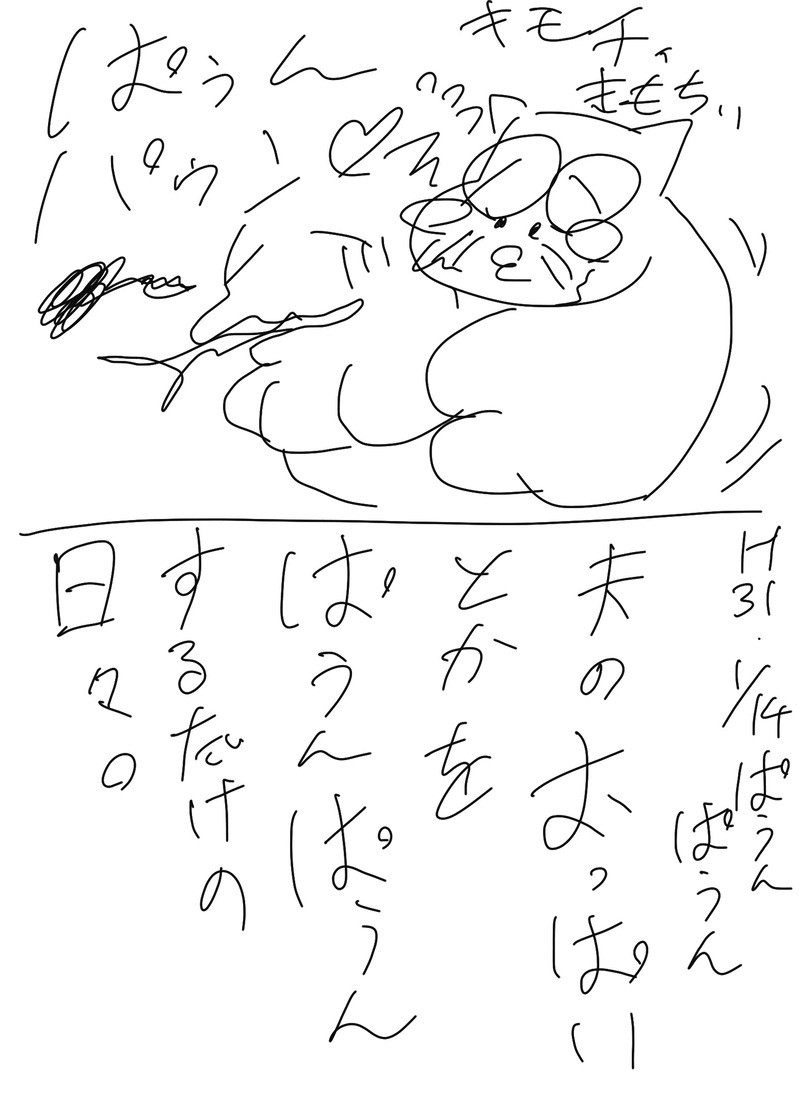 キモチ
きもちぃ
ぱぅん
パゥン♡
H31.1/14 ぱうん
ぱうん
夫のおっぱい
とかを
ぱうんぱうん
するだけの
日々の